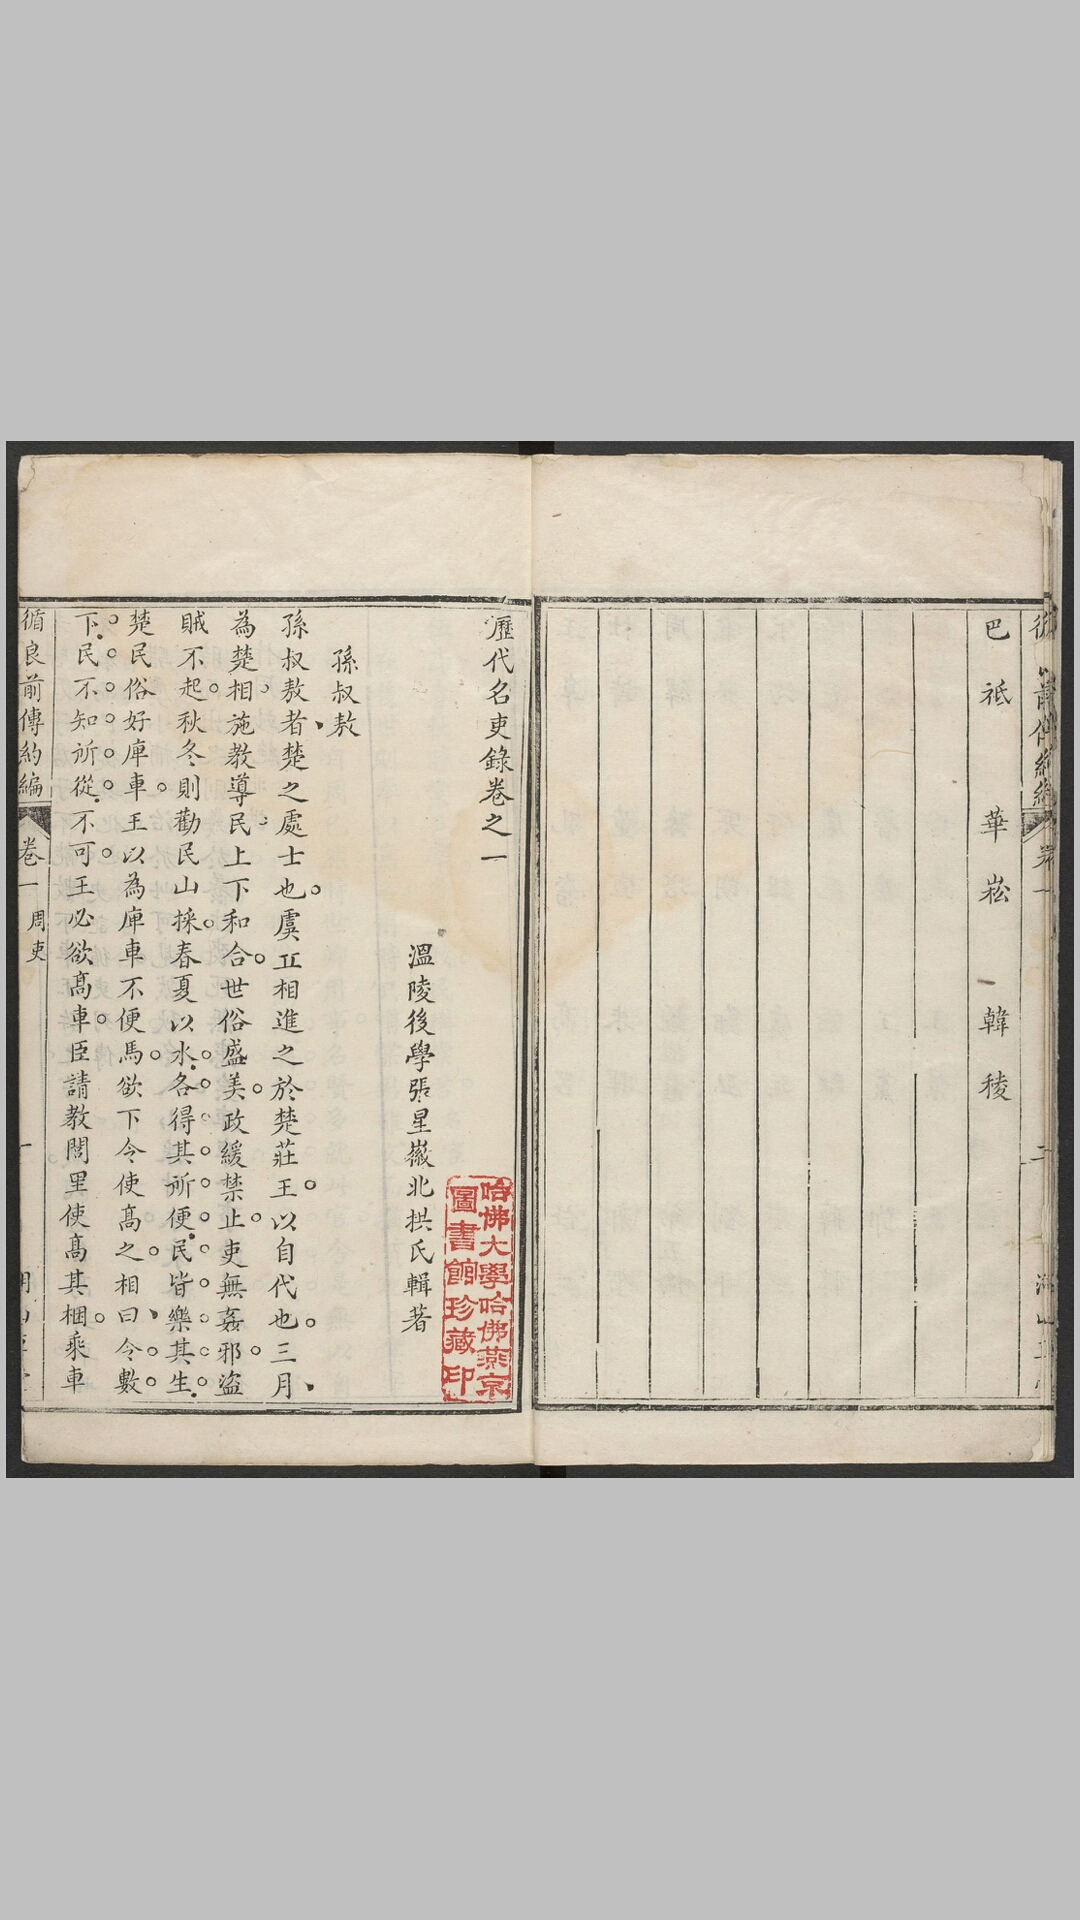 巴祗　華崧　韓稜
歷代名吏錄卷之一
溫陵後學張星徽北拱氏輯著
哈佛大學哈佛燕京
圖書館珍藏印
孫叔敖
孫叔敖者楚之處士也虞丘相進之於楚莊王以自代也三月
為楚相施教導民上下和合世俗盛美政緩禁止吏無姦邪盜
賊不起秋冬則勸民山採春夏以水各得其所便民皆樂其生
楚民俗好庳車王以為庳車不便馬欲下令使高之相曰令數
下民不知所從不可王必欲高車臣請教閭里使高其梱乘車
循良前傳約編
卷一
周吏
一